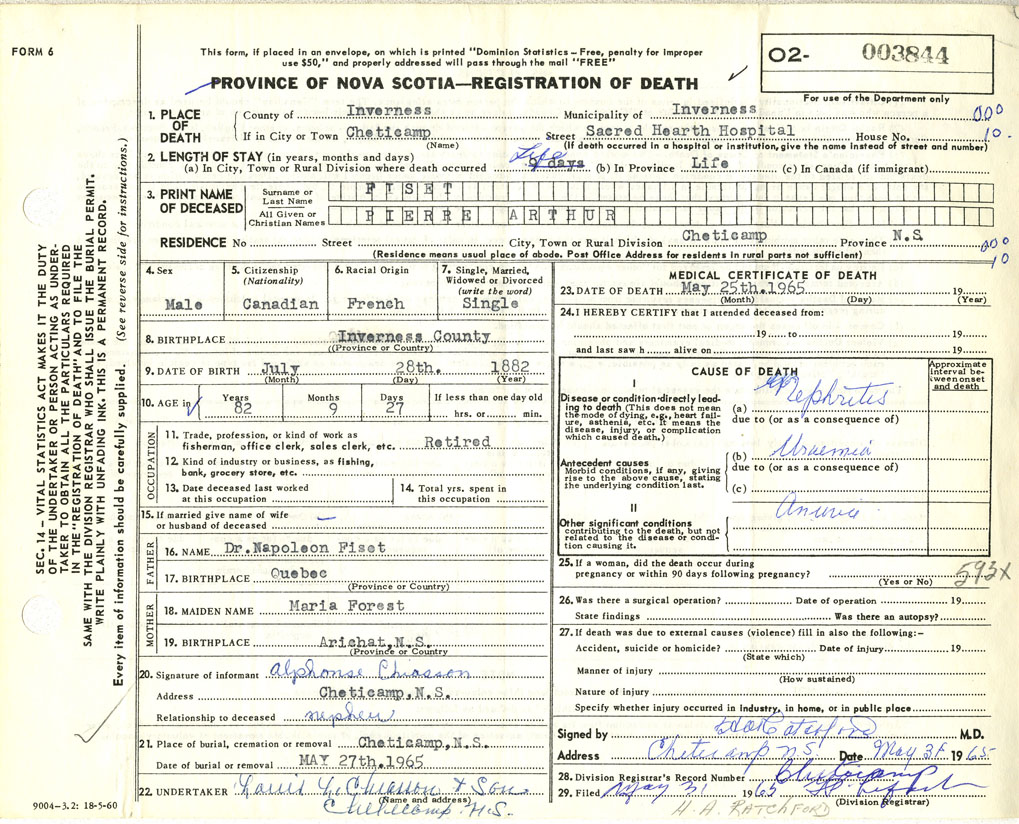 FORM 6
This form, if placed in an envelope, on which is printed "Dominion Statistics – Free, penalty for improper
use $50," and properly addressed will pass through the mail "FREE"
PROVINCE OF NOVA SCOTIA—REGISTRATION OF DEATH
02- 003844
For use of the Department only
SEC. 14 – VITAL STATISTICS ACT MAKES IT THE DUTY
OF THE UNDERTAKER OR PERSON ACTING AS UNDER-
TAKER TO OBTAIN ALL THE PARTICULARS REQUIRED
IN THE "REGISTRATION OF DEATH" AND TO FILE THE
SAME WITH THE DIVISION REGISTRAR WHO SHALL ISSUE THE BURIAL PERMIT.
WRITE PLAINLY WITH UNFADING INK. THIS IS A PERMANENT RECORD.
Every item of information should be carefully supplied. (See reverse side for instructions.)
1. PLACE OF DEATH
County of Inverness Municipality of Inverness 000
If in City or Town Cheticamp Street Sacred Hearth Hospital House No. 10
(Name) (If death occurred in a hospital or institution, give the name instead of street and number)
2. LENGTH OF STAY (in years, months and days)
(a) In City, Town or Rural Division where death occurred Life 9 days (b) In Province Life (c) In Canada (if immigrant)
3. PRINT NAME OF DECEASED
Surname or Last Name FISET
All Given or Christian Names PIERRE ARTHUR
RESIDENCE No Street City, Town or Rural Division Cheticamp Province N.S. 000
(Residence means usual place of abode. Post Office Address for residents in rural parts not sufficient) 10
4. Sex Male
5. Citizenship (Nationality) Canadian
6. Racial Origin French
7. Single, Married, Widowed or Divorced (write the word) Single
8. BIRTHPLACE Inverness County
((Province or Country)
9. DATE OF BIRTH July 28th. 1882
(Month) (Day) (Year)
10. AGE in Years 82 Months 9 Days 27 If less than one day old hrs. or min.
OCCUPATION
11. Trade, profession, or kind of work as
fisherman, office clerk, sales clerk, etc. Retired
12. Kind of industry or business, as fishing,
bank, grocery store, etc.
13. Date deceased last worked at this occupation
14. Total yrs. spent in this occupation
15. If married give name of wife
or husband of deceased —
FATHER
16. NAME Dr. Napoleon Fiset
17. BIRTHPLACE Quebec
(Province or Country)
MOTHER
18. MAIDEN NAME Maria Forest
19. BIRTHPLACE Arichat, N.S.
(Province or Country)
20. Signature of informant Alphonse Chiasson
Address Cheticamp, N.S.
Relationship to deceased nephew
21. Place of burial, cremation or removal Cheticamp, N.S.
Date of burial or removal MAY 27th. 1965
22. UNDERTAKER Louis L. Chiasson & Son
(Name and address)
Cheticamp N.S.
MEDICAL CERTIFICATE OF DEATH
23. DATE OF DEATH May 25th. 1965 19
(Month) (Day) (Year)
24. I HEREBY CERTIFY that I attended deceased from:
19 to 19
and last saw h alive on 19
CAUSE OF DEATH
Approximate interval between onset and death
I
Disease or condition directly lead-
ing to death (This does not mean
the mode of dying, e.g., heart fail-
ure, asthenia, etc. It means the
disease, injury, or complication
which caused death.)
(a) Nephritis
due to (or as a consequence of)
Antecedent causes
Morbid conditions, if any, giving
rise to the above cause, stating
the underlying condition last.
(b) Uraemia
due to (or as a consequence of)
(c)
II
Anuria
Other significant conditions
contributing to the death, but not
related to the disease or condi-
tion causing it.
25. If a woman, did the death occur during
pregnancy or within 90 days following pregnancy? 593X
(Yes or No)
26. Was there a surgical operation? Date of operation 19
State findings Was there an autopsy?
27. If death was due to external causes (violence) fill in also the following:–
Accident, suicide or homicide? Date of injury 19
(State which)
Manner of injury
(How sustained)
Nature of injury
Specify whether injury occurred in industry, in home, or in public place
Signed by M.D.
Address Cheticamp N.S. Date May 31 1965
28. Division Registrar's Record Number Cheticamp
29. Filed May 31 1965
(Division Registrar)
H. A. RATCHFORD
9004–3.2: 18-5-60